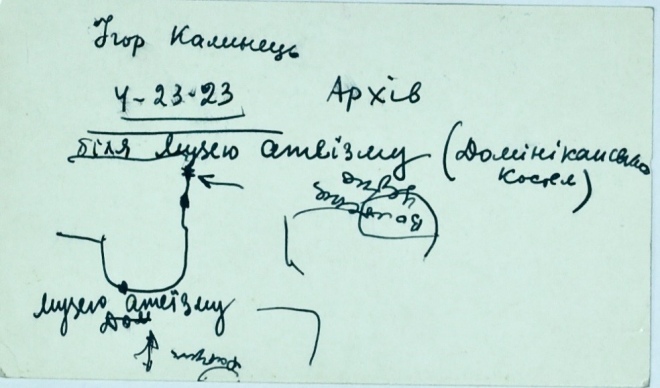 Ігор Калинець
4-23-23 Архів
біля музею атеїзму (Домініканський
костел)
музею атеїзму